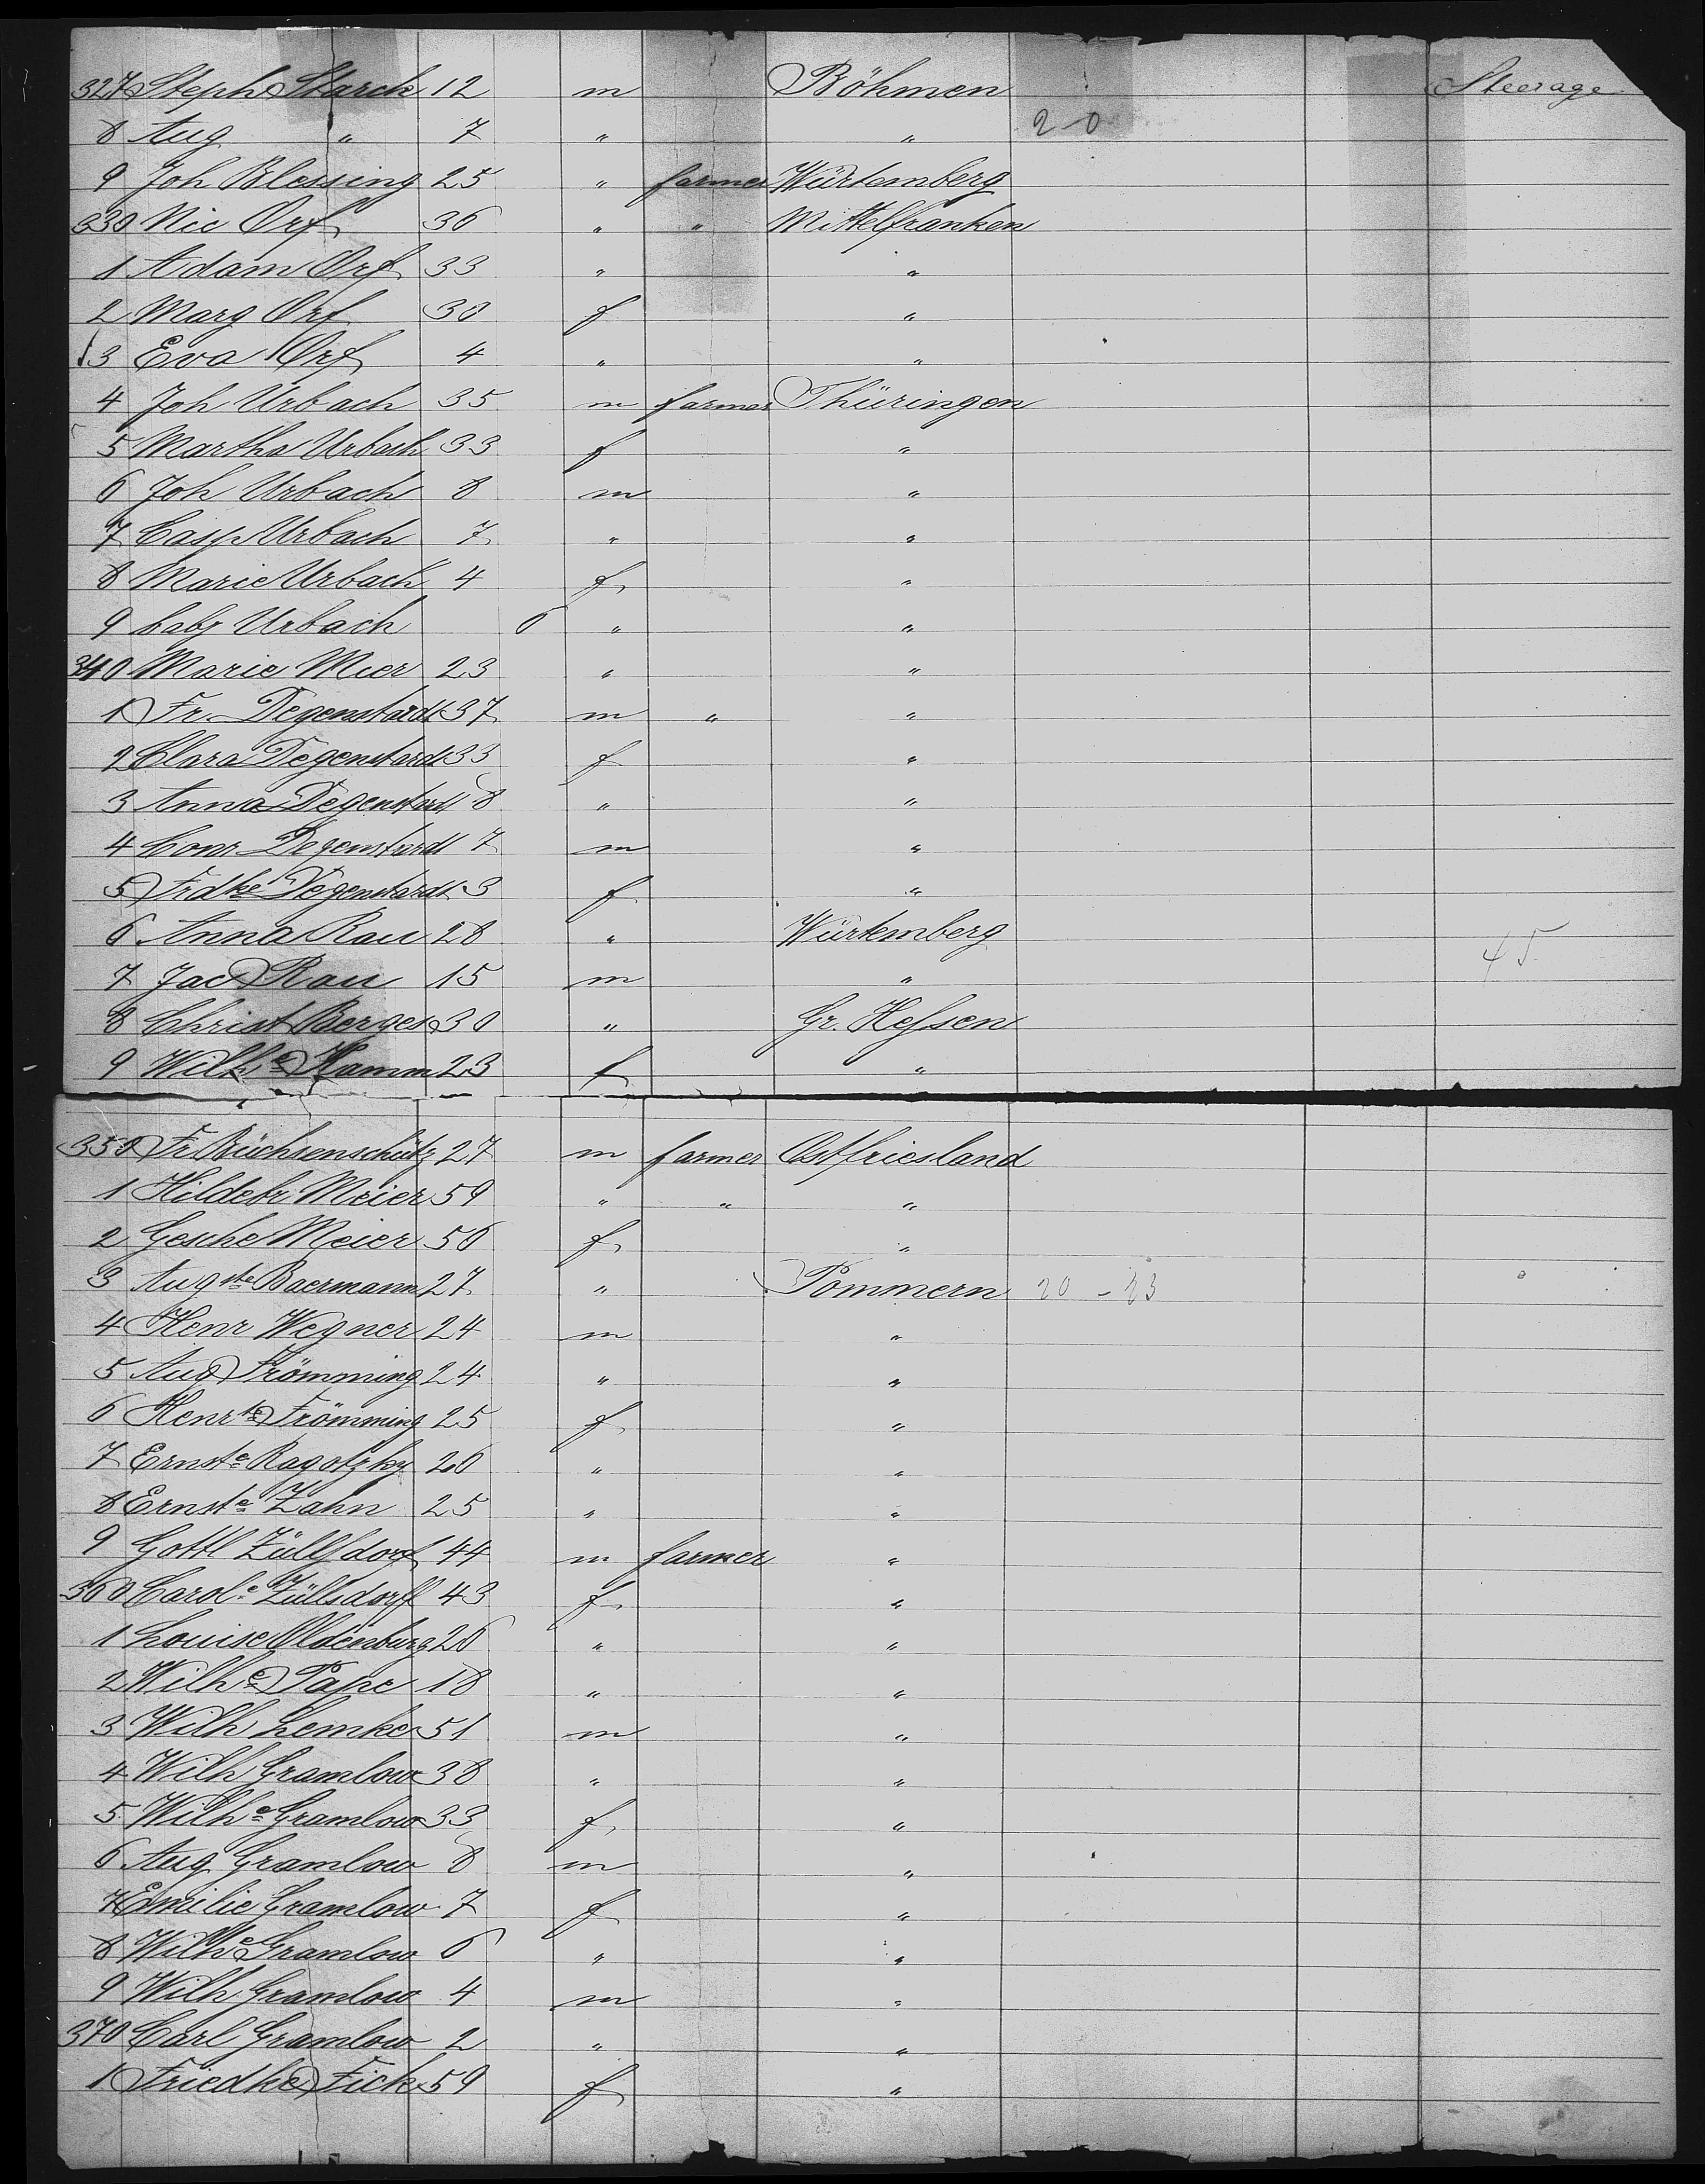 327 Steph Starck 12 m Böhmen Steerage
8 Aug " 7 " " 2-0
9 Joh Blessing 25 " farmer Würtemberg
330 Nic Orf 36 " " Mittelfranken
1 Adam Orf 33 " "
2 Marg Orf 30 f "
3 Eva Orf 4 " "
4 Joh Urbach 35 m farmer Thüringen
5 Martha Urbach 33 f "
6 Joh Urbach 8 m "
7 Casp Urbach 7 " "
8 Marie Urbach 4 f "
9 baby Urbach 6 " "
340 Marie Mier 23 " "
1 Fr. Degenhardt 37 m " "
2 Clara Degenhardt 33 f "
3 Anna Degenhardt 8 " "
4 Conr Degenhardt 7 m "
5 Frdke Degenhardt 3 f "
6 Anna Rau 28 " Würtemberg
7 Jac Rau 15 m " 45
8 Christ Berges 30 " Gr. Hessen
9 Wilhe Hamm 23 f "
350 Fr Büchsenschütz 27 m farmer Ostfriesland
1 Hildebr Meier 59 " " "
2 Gesche Meier 56 f "
3 Augste Baermann 27 " Pommern 20-23
4 Henr Wegner 24 m "
5 Aug Frömming 24 " "
6 Henrte Frömming 25 f "
7 Ernste Ragotzky 26 " "
8 Ernste Zahn 25 " "
9 Gottl Züllsdorf 44 m farmer "
360 Carole Züllsdorff 43 f "
1 Louise Oldenburg 26 " "
2 Wilhe Pape 18 " "
3 Wilh Lemke 51 m "
4 Wilh Gramlow 38 " "
5 Wilhe Gramlow 33 f "
6 Aug Gramlow 8 m "
7 Emilie Gramlow 7 f "
8 Wilhe Gramlow 6 " "
9 Wilh Gramlow 4 m "
370 Carl Gramlow 2 " "
1 Friedke Fick 59 f "